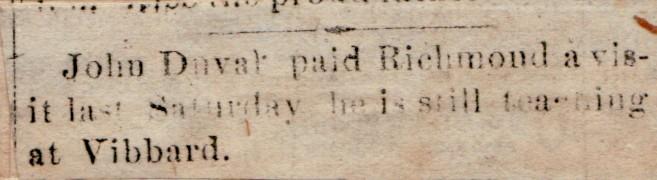 the proud
John Duval paid Richmond a vis-
it last Saturday he is still teaching
at Vibbard.